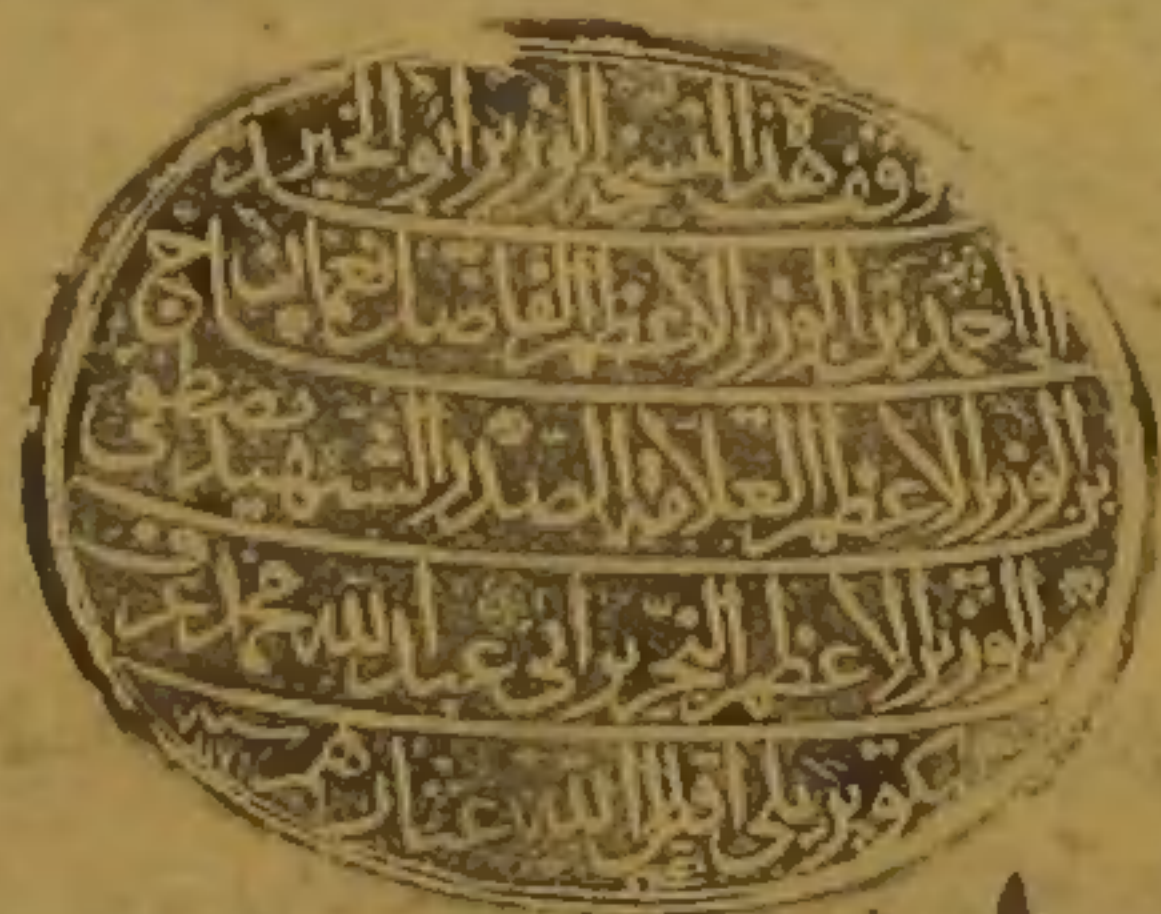 وقف هذا النسخة الوزير أبو الخير
الحاج أحمد بن الوزير الأعظم الفاضل نعمان
بن الوزير الأعظم العلامة الصدر الشهيد مصطفى
بن الوزير الأعظم النحرير أبي عبد الله محمد عرف
كوبريلي أقال الله عثارهم